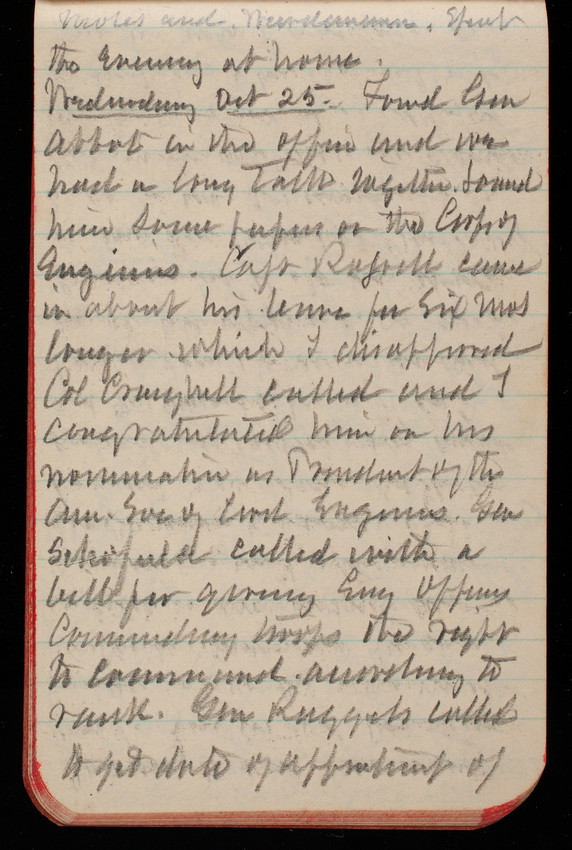 notes and . Spent
the Evening at home.
Wednesday Oct 25. Found Gen
Abbot in the office and we
had a long talk together. Loaned
him some papers on the Corps of
Engineers. Capt Russell came
in about his leave for Six Mos
longer which I disapproved
Col Craighill called and I
congratulated him on his
nomination as President of the
Am. Soc of Civil Engineers. Gen
Schofield called with a
bill for giving Eng Officers
Commanding troops the right
to command according to
rank. Gen Ruggels called
to get date of appointment of